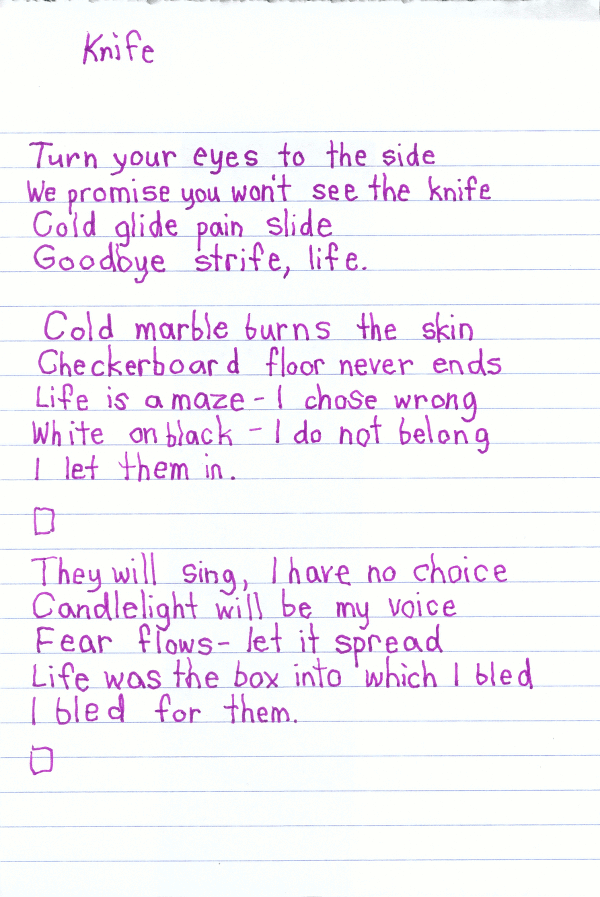 Knife
Turn your eyes to the side
We promise you won't see the knife
Cold glide pain slide
Goodbye strife, life.
Cold marble burns the skin
Checkerboard floor never ends
Life is a maze - I chose wrong
White on black - I do not belong
I let them in.
□
They will sing, I have no choice
Candlelight will be my voice
Fear flows - let it spread
Life was the box into which I bled
I bled for them.
□